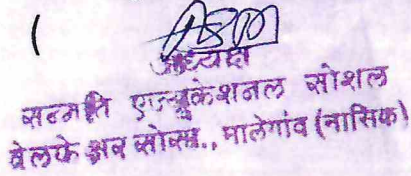 अध्यक्ष
सन्मति एज्युकेशनल सोशल
वेलफेअर सोसा., मालेगांव (नासिक)